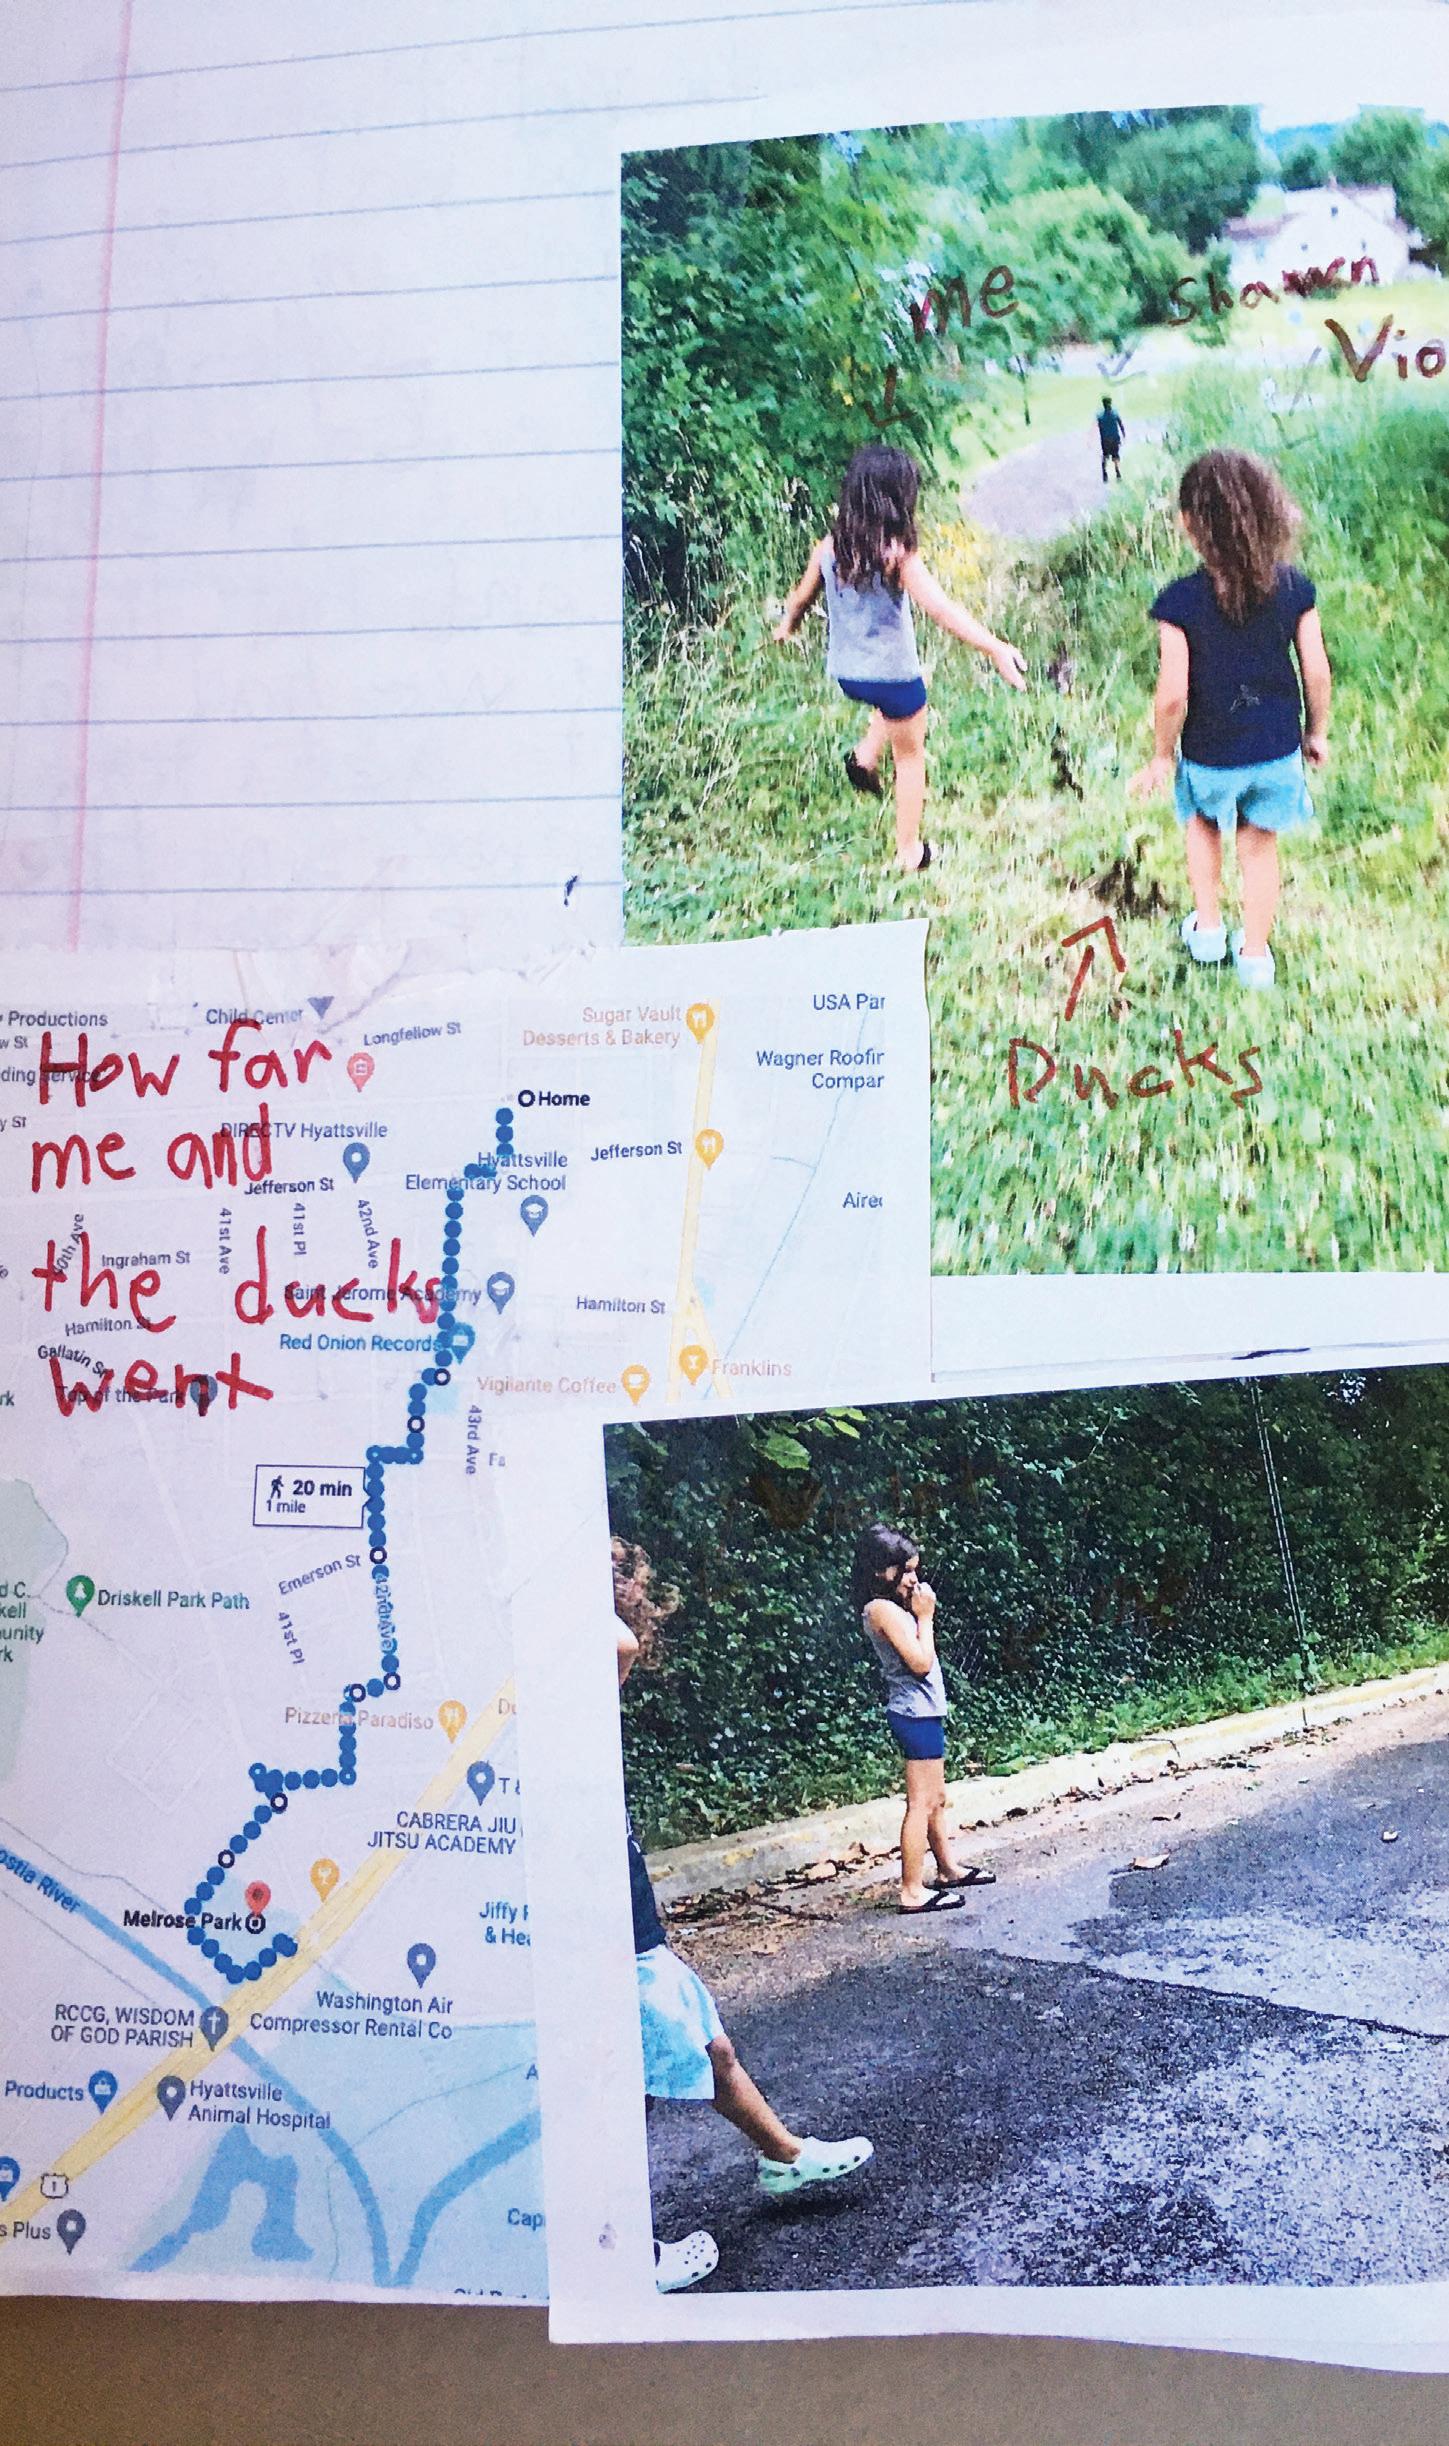 me
Shawn
Vio
Ducks
How far
me and
the ducks
went
Productions
w St
ding Service
y St
Child Center
Longfellow St
Sugar Vault
Desserts & Bakery
USA Par
Wagner Roofin
Compar
Home
DIRECTV Hyattsville
Jefferson St
Hyattsville
Elementary School
Jefferson St
Airec
40th Ave
41st Ave
41st Pl
42nd Ave
Ingraham St
Saint Jerome Academy
Hamilton St
Hamilton St
Gallatin St
Red Onion Records
Franklins
rk
Top of the Park
Vigilante Coffee
43rd Ave
Fa
20 min
1 mile
Emerson St
42nd Ave
41st Pl
d C.
kell
unity
rk
Driskell Park Path
Pizzeria Paradiso
De
T &
CABRERA JIU
JITSU ACADEMY
ostia River
Melrose Park
Jiffy
& Hea
RCCG, WISDOM
OF GOD PARISH
Washington Air
Compressor Rental Co
Products
Hyattsville
Animal Hospital
A
1
s Plus
Cap